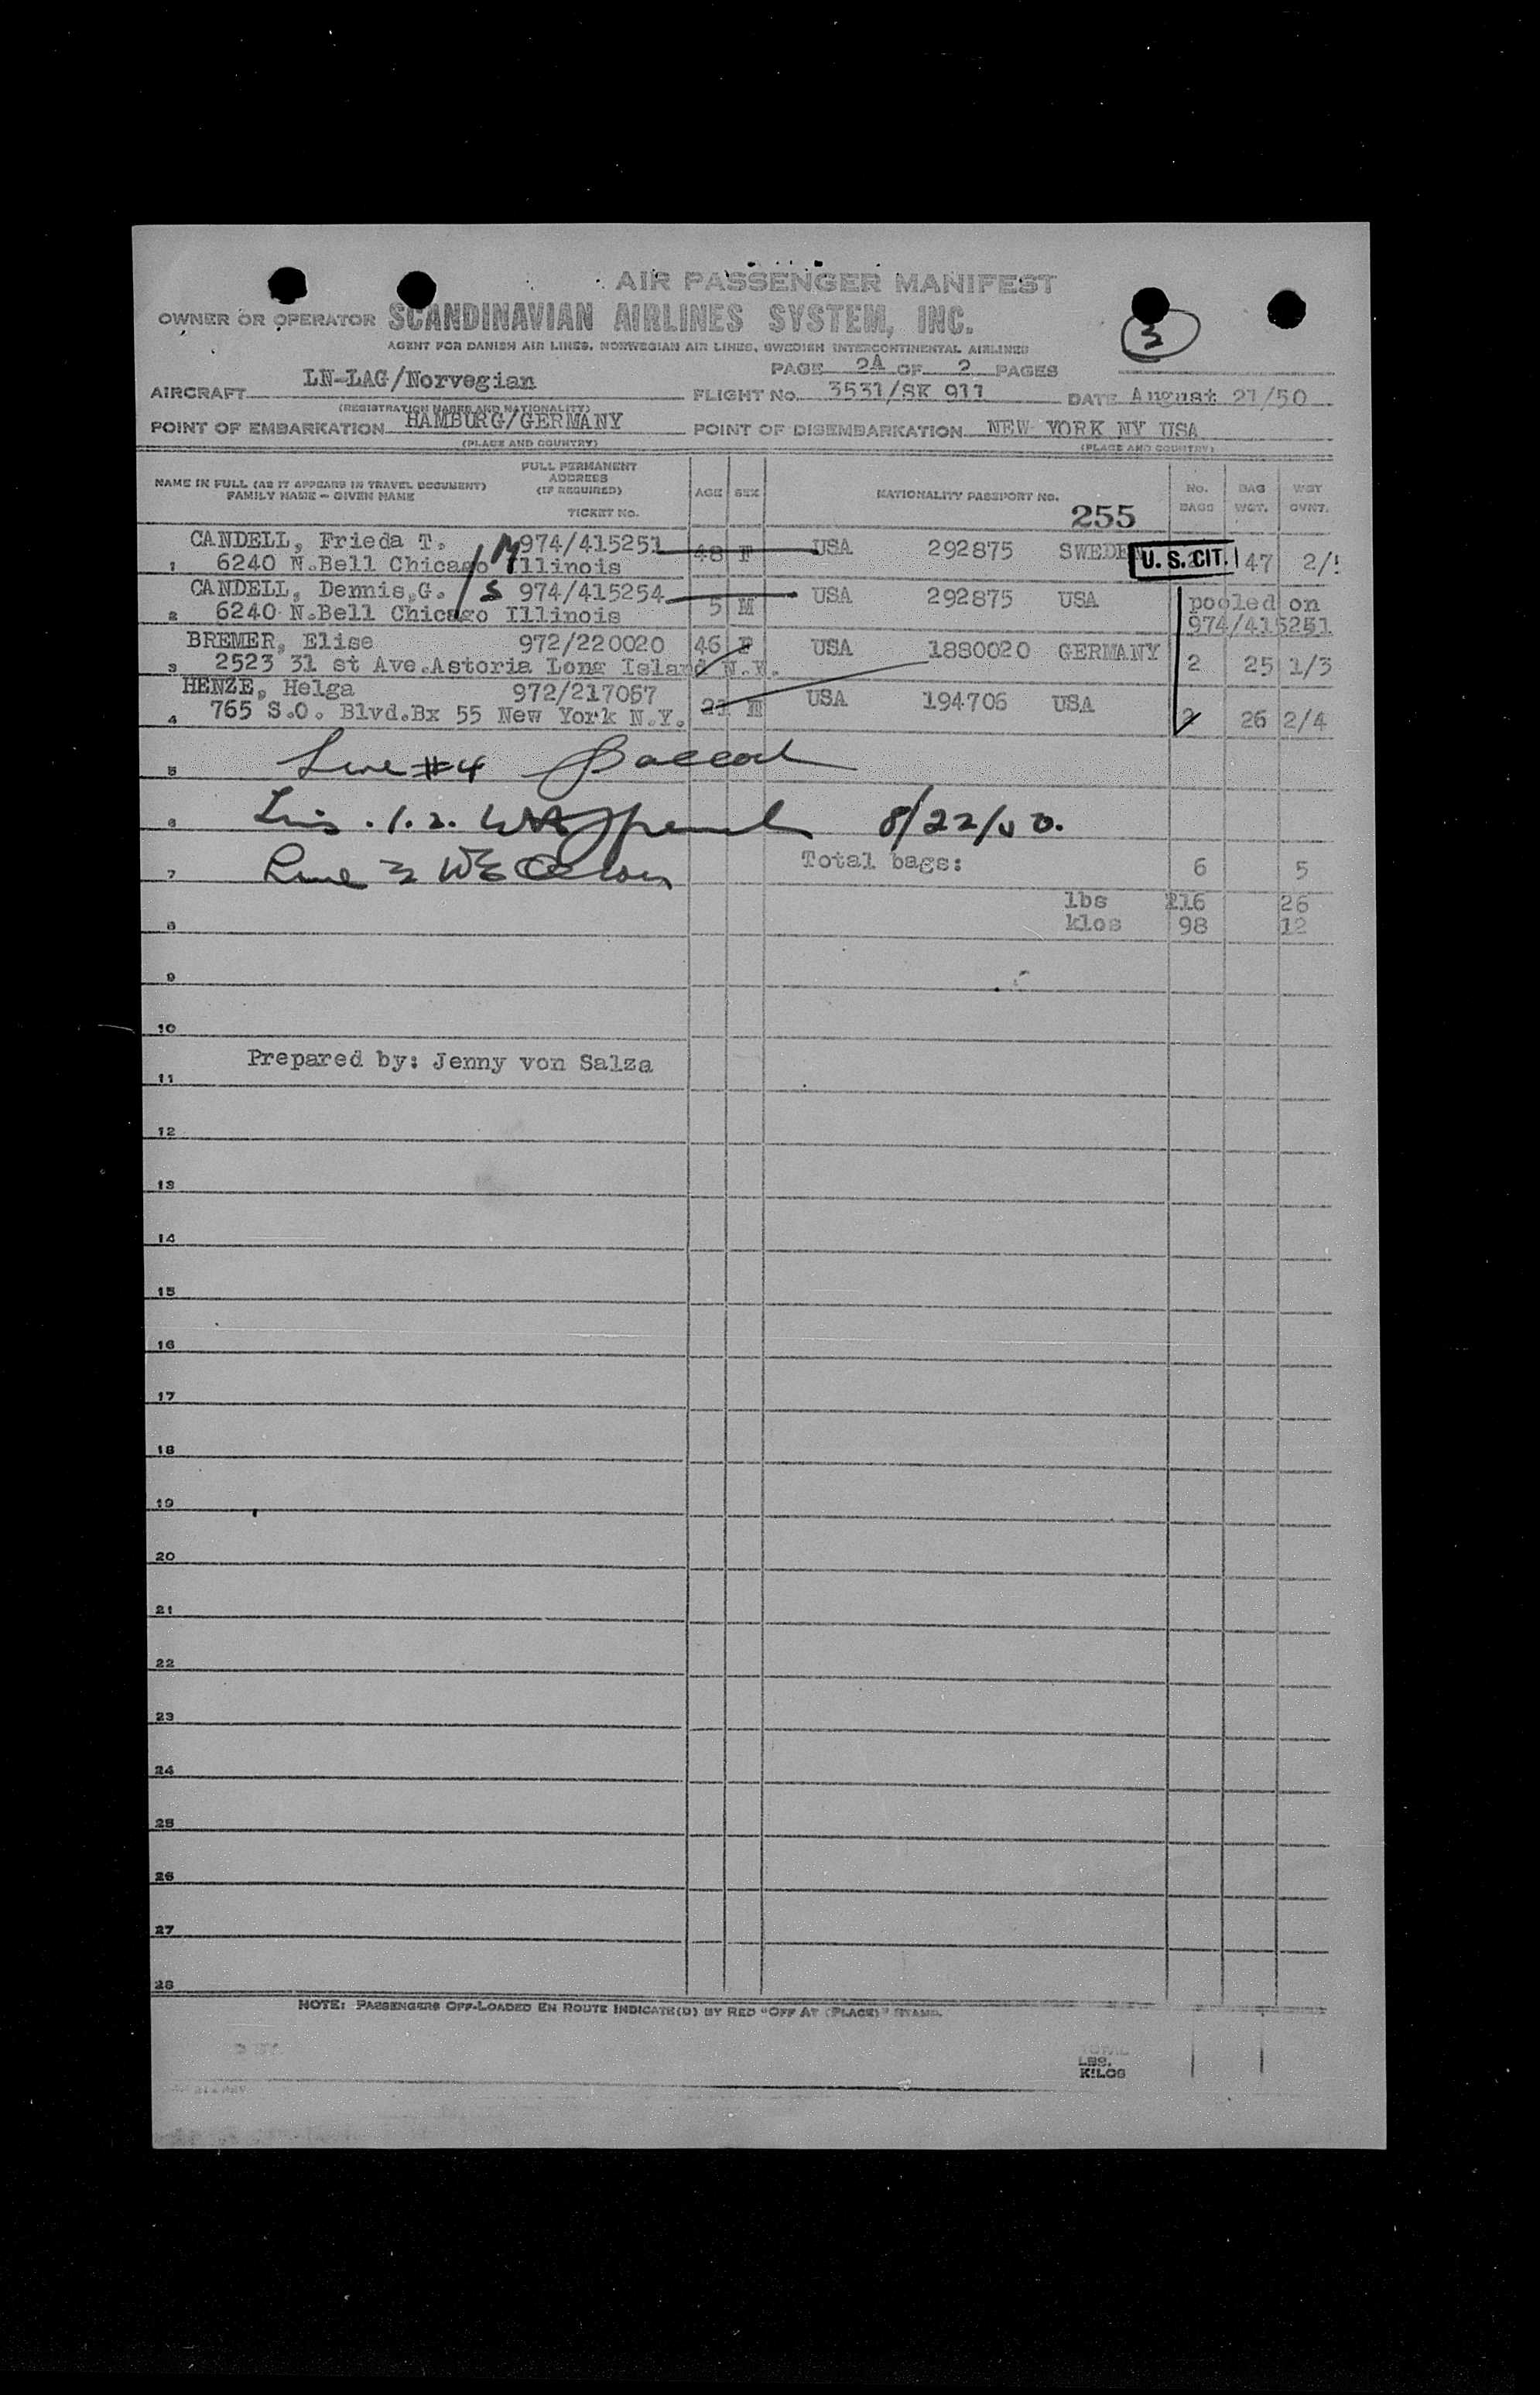 AIR PASSENGER MANIFEST
OWNER OR OPERATOR SCANDINAVIAN AIRLINES SYSTEM, INC.
3
AGENT FOR DANISH AIR LINES, NORWEGIAN AIR LINES, SWEDISH INTERCONTINENTAL AIRLINES
PAGE 2A OF 2 PAGES
AIRCRAFT LN-LAG/Norvegian FLIGHT No. 3531/SK 911 DATE August 21/50
(REGISTRATION MARKS AND NATIONALITY)
POINT OF EMBARKATION HAMBURG/GERMANY POINT OF DISEMBARKATION NEW YORK NY USA
(PLACE AND COUNTRY) (PLACE AND COUNTRY)
NAME IN FULL (AS IT APPEARS IN TRAVEL DOCUMENT) FAMILY NAME - GIVEN NAME FULL PERMANENT ADDRESS (IF REQUIRED) TICKET NO. AGE SEX NATIONALITY PASSPORT NO. 255 No. BAGS BAG WGT. WGT OVWT.
CANDELL, Frieda T. M 974/415251 48 F USA 292875 SWEDEN U. S. CIT. 47 2/
1 6240 N.Bell Chicago Illinois
CANDELL, Dennis,G. S 974/415254 5 M USA 292875 USA pooled on
2 6240 N.Bell Chicago Illinois 974/415251
BREMER, Elise 972/220020 46 F USA 1880020 GERMANY
3 2523 31 st Ave.Astoria Long Island N.Y. 2 25 1/3
HENZE, Helga 972/217067 21 USA 194706 USA
4 765 S.O. Blvd.Bx 55 New York N.Y. 2 26 2/4
5 Line #4
6 8/22/50.
7 Line 3 Total bags: 6 5
lbs 216 26
8 klos 98 12
9
10
Prepared by: Jenny von Salza
11
12
13
14
15
16
17
18
19
20
21
22
23
24
25
26
27
28
NOTE: PASSENGERS OFF-LOADED EN ROUTE INDICATE(D) BY RED "OFF AT (PLACE)" STAMP.
TOTAL
LBS.
KILOS